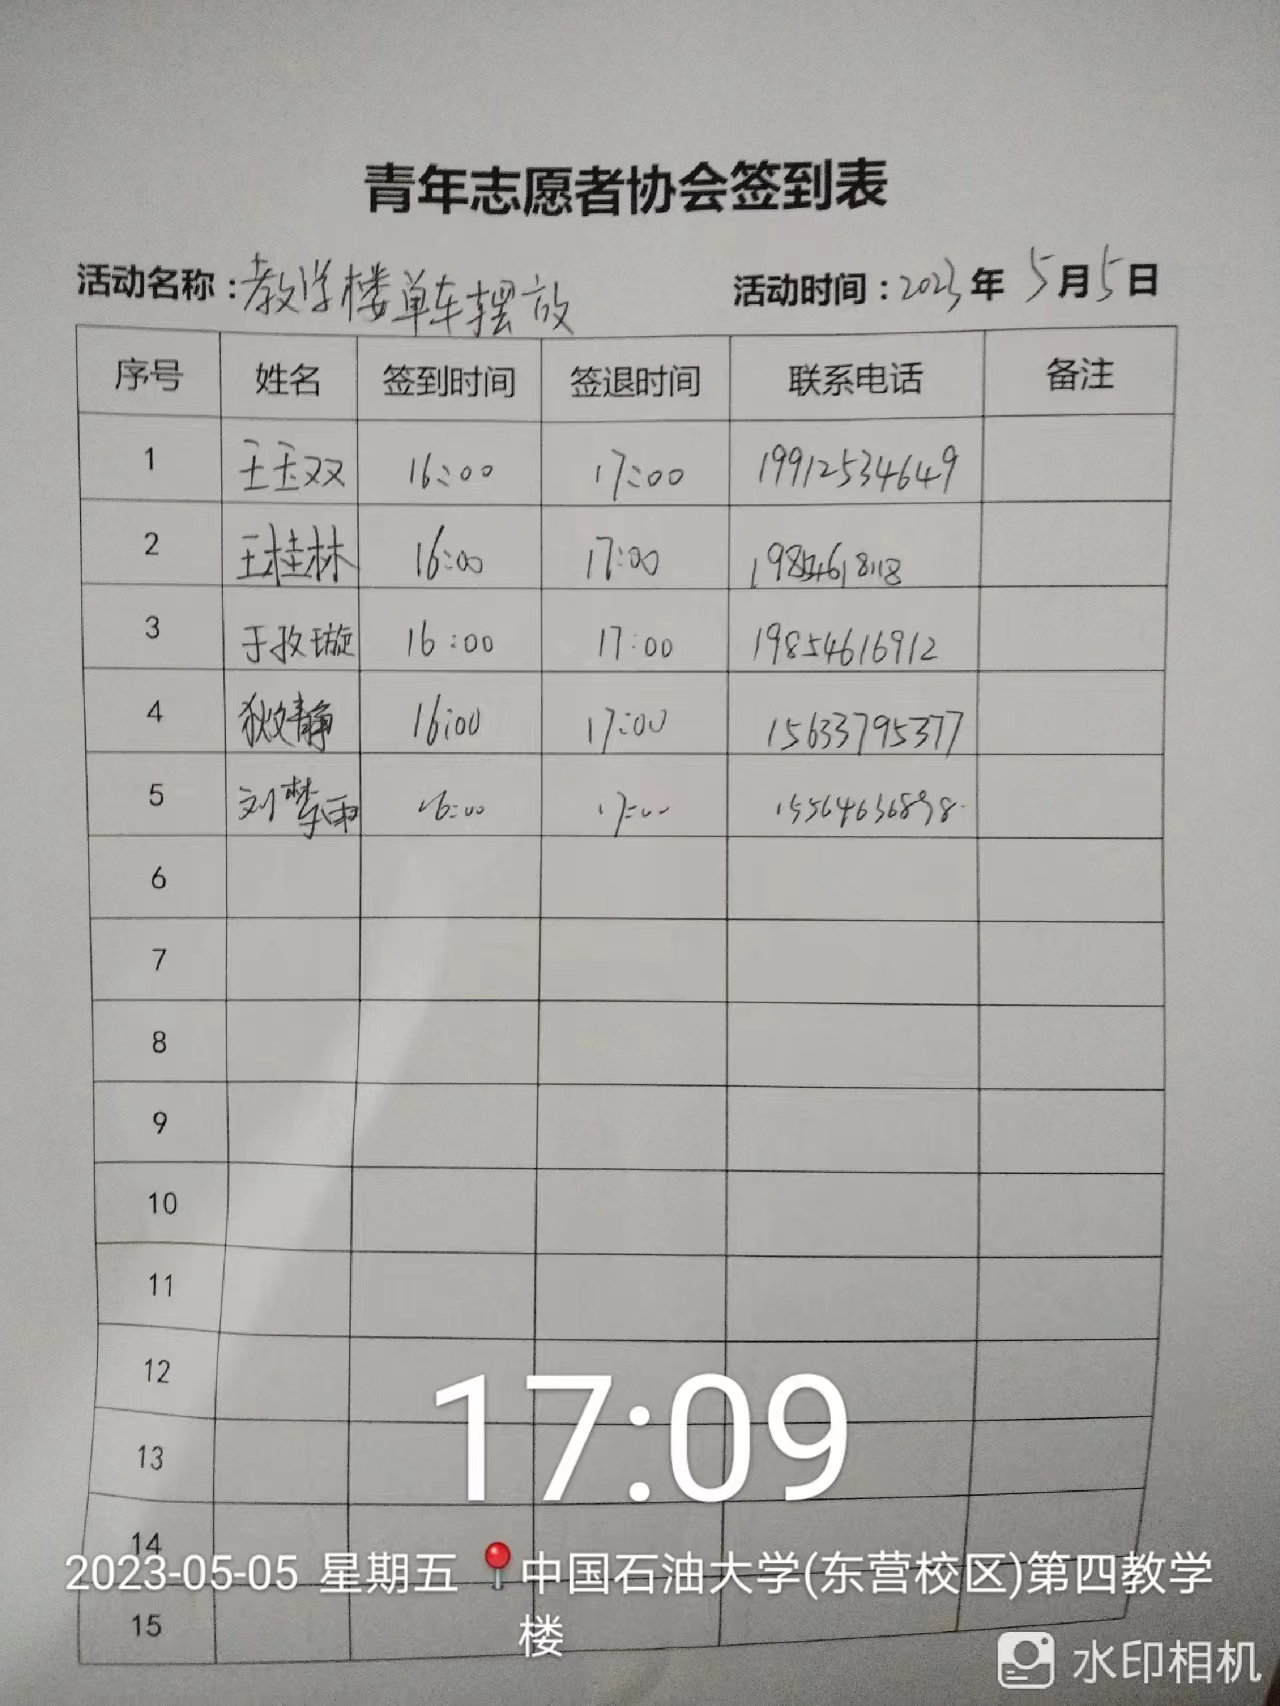 青年志愿者协会签到表
活动名称：教学楼单车摆放 活动时间：2023年 5月5日
序号 姓名 签到时间 签退时间 联系电话 备注
1 王玉双 16:00 17:00 19912534649
2 王桂林 16:00 17:00
3 于孜璇 16:00 17:00 19854616912
4 狄文静 16:00 17:00 15633795377
5 刘梦雨 16:00 17:00 15564636898
6
7
8
9
10
11
12
13
14
15
17:09
2023-05-05 星期五 中国石油大学(东营校区)第四教学
楼
水印相机